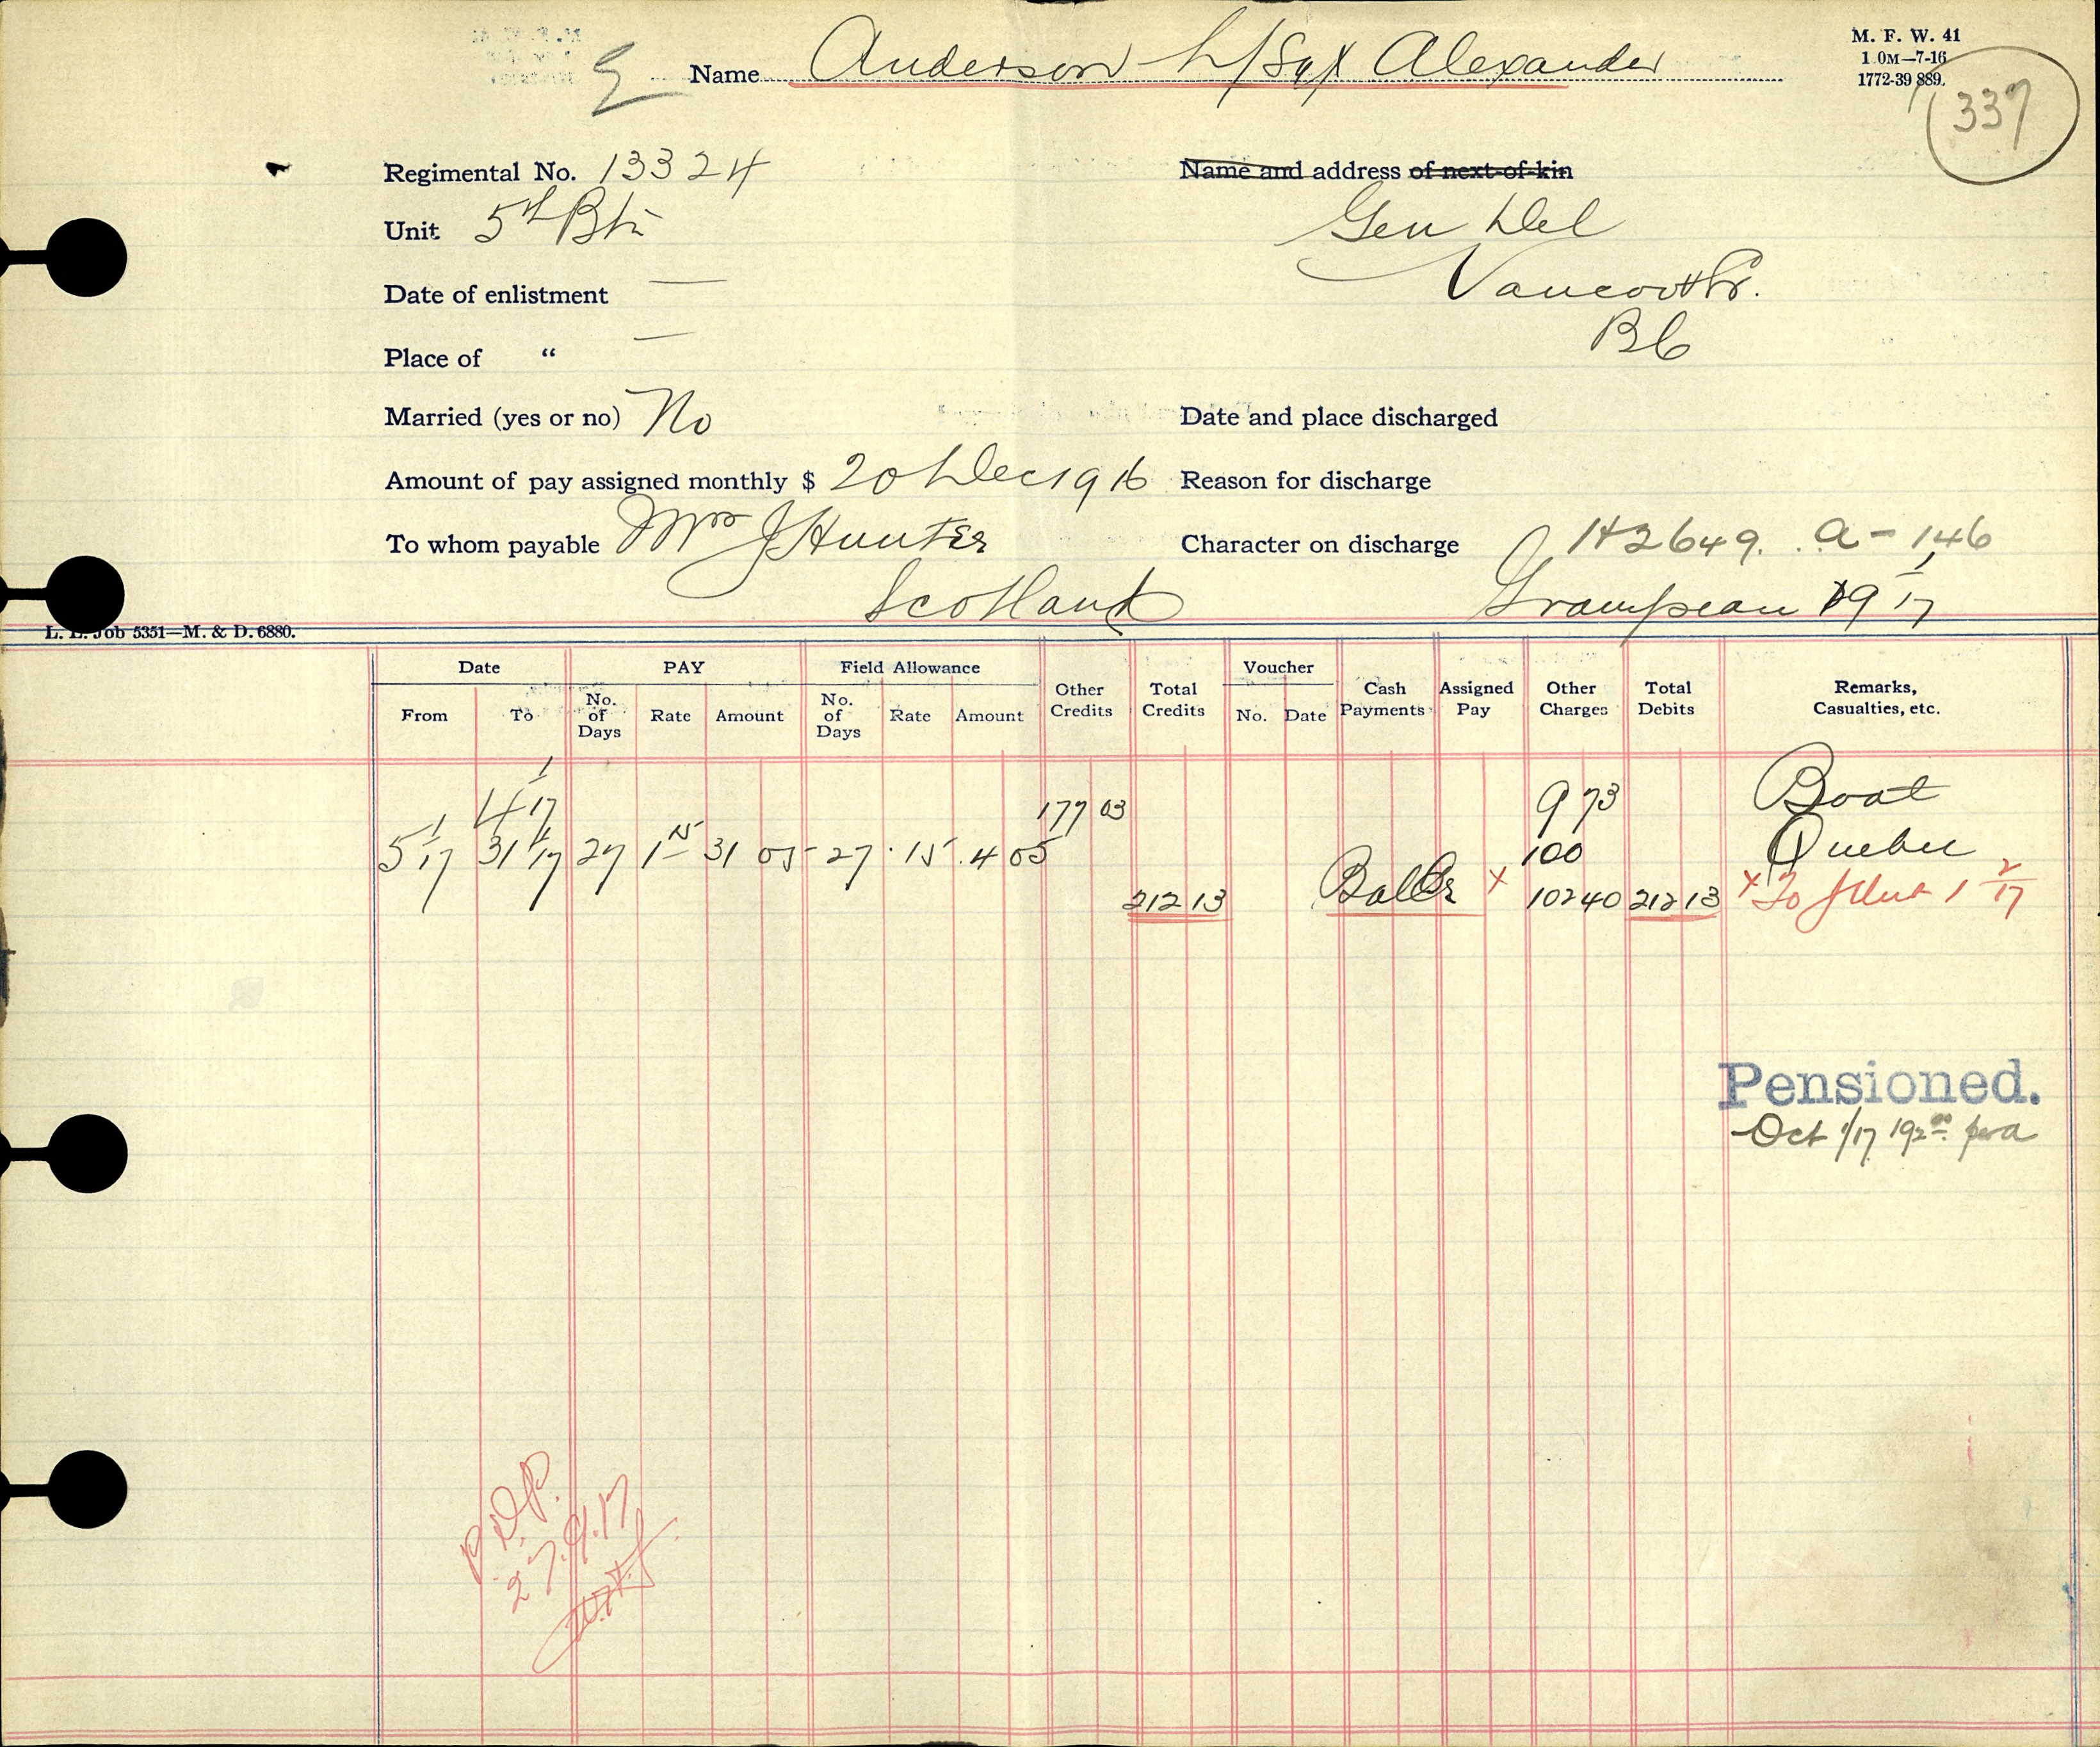 Name Anderson L/Sgt Alexander
M. F. W. 41
1 0M—7-16
1772-39 889.
337
Regimental No. 13324
Name and address of next-of-kin
Unit 5th Btn
Gen Del
Vancouver.
BC
Date of enlistment —
Place of " —
Married (yes or no) No
Date and place discharged
Amount of pay assigned monthly $ 20 Dec 1916
Reason for discharge
To whom payable Mrs J Hunter
Scotland
Character on discharge
H2649. a-146
Grampian 19 1/17
L. L. Job 5351—M. & D. 6880.
Date PAY Field Allowance Other Credits Total Credits Voucher Cash Payments Assigned Pay Other Charges Total Debits Remarks, Casualties, etc.
From To No. of Days Rate Amount No. of Days Rate Amount No. Date
4 1/17 177 03 9 73 Boat
5 1/17 31 1/17 27 1 15 31 05 27 .15 4 05 100 Quebec
212 13 Bal Cr x 102 40 212 13 x To 1 2/17
Pensioned.
Oct 1/17 192.00 pra
P.D.P.
27.9.17